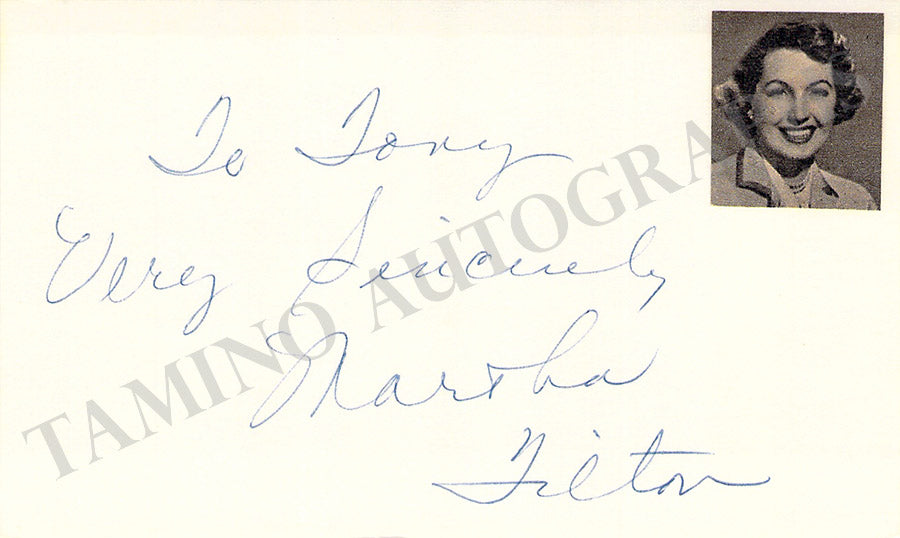 To Tony
Very Sincerely
Martha
Tilton
TAMINO AUTOGRA